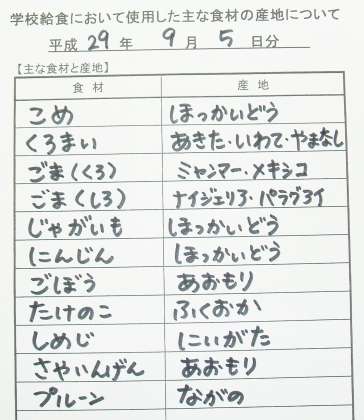 学校給食において使用した主な食材の産地について
平成 29 年 9 月 5 日分
【主な食材と産地】
食材 産地
こめ ほっかいどう
くろまい あきた・いわて・やまなし
ごま(くろ) ミャンマー・メキシコ
ごま(しろ) ナイジェリア・パラグアイ
じゃがいも ほっかいどう
にんじん ほっかいどう
ごぼう あおもり
たけのこ ふくおか
しめじ にいがた
さやいんげん あおもり
プルーン ながの